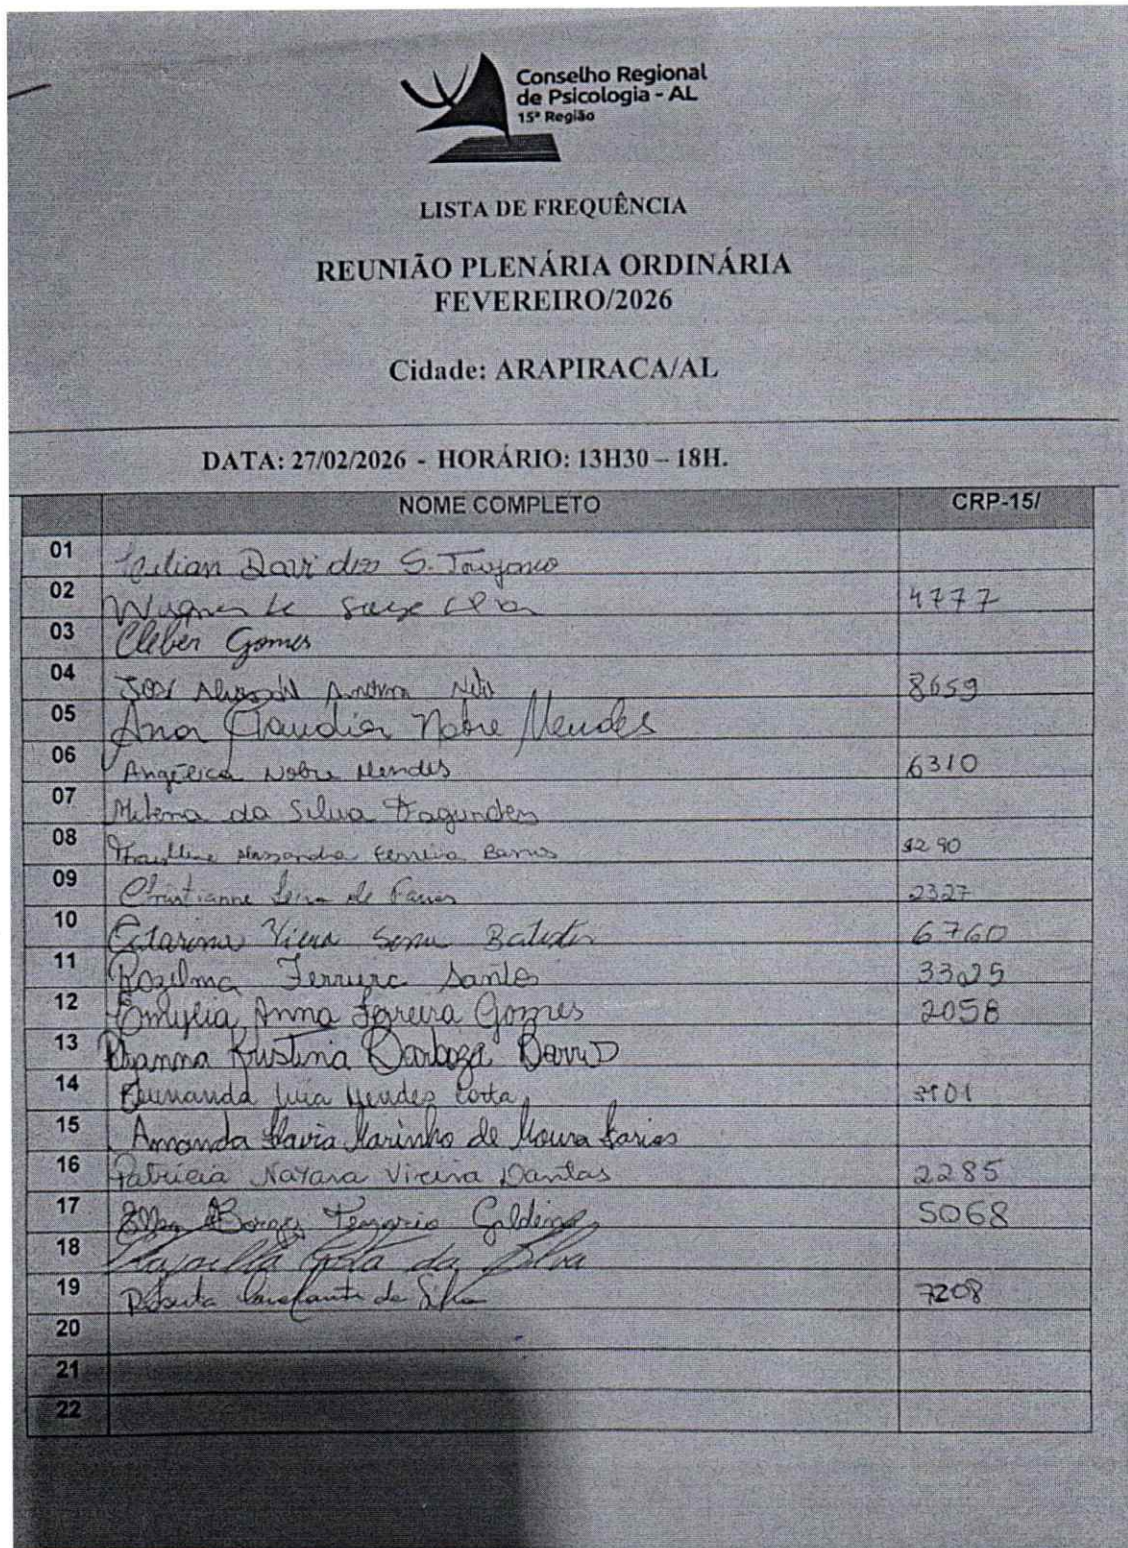 Conselho Regional
de Psicologia - AL
15ª Região
LISTA DE FREQUÊNCIA
REUNIÃO PLENÁRIA ORDINÁRIA
FEVEREIRO/2026
Cidade: ARAPIRACA/AL
DATA: 27/02/2026 - HORÁRIO: 13H30 – 18H.
NOME COMPLETO CRP-15/
01 S.
02 4777
03 Cleber Gomes
04 José Amorim Neto 8659
05 Ana Claudia Nobre Mendes
06 Angélica Nobre Mendes 6310
07 Milena da Silva Fagundes
08 Ferreira Barros
09 Christianne de Farias 2327
10 Catarina Viena Sena Batista 6760
11 Rozilma Ferreira Santos 3325
12 Emylia Anna Ferreira Gomes 2058
13 Kristina Barboza
14 Fernanda Luiza Mendes Costa
15 Amanda Flavia Marinho de Moura Farias
16 Patrícia Nayara Vieira Dantas 2285
17 Ellen Borges Tenorio Galdino 5068
18 da Silva
19 Roberta Cavalcante da Silva 7208
20
21
22